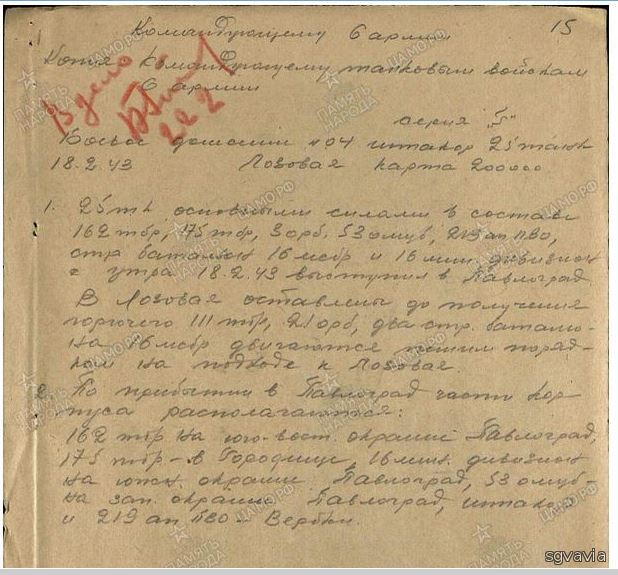 Командующему 6 армии
15
Копия: Командующему танковыми войсками
6 армии
В дело
22.2
серия "Б"
Боевое донесение №04 штакор 25 танк
18.2.43 Лозовая карта 200000
1. 25 тк основными силами в составе
162 тбр, 175 тбр, 3 орб, 53 омцб, 219 ап ПВО,
стр. батальон 16 мсбр и 16 мин. дивизион
с утра 18.2.43 выступил в Павлоград
В Лозовая оставлены до получения
горючего 111 тбр, два стр. батальо-
на 16 мсбр двигаются пешим поряд-
ком на подходе к Лозовая.
2. По прибытии в Павлоград части кор-
пуса располагаются:
162 тбр на юго-вост. окраине Павлоград,
175 тбр - в Городище, 16 мин. дивизион
на южн. окраине Павлоград, 53 омцб -
на зап. окраине Павлоград, штакор
и 219 ап ПВО - Вербки.
ПАМЯТЬ НАРОДА
ЦАМО РФ
sgvavia